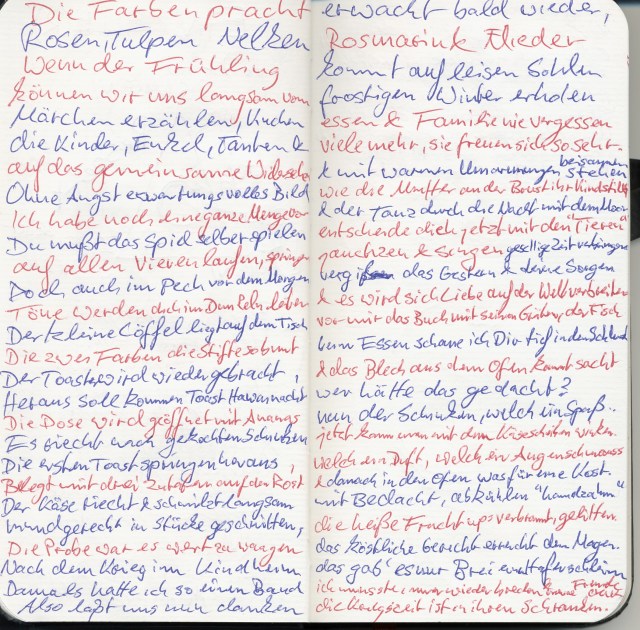 Die Farbenpracht
Rosen, Tulpen Nelken
Wenn der Frühling
können wir uns langsam vom
Märchen erzählen, Kuchen
die Kinder, Enkel, Tanten &
auf das gemeinsame Wiedersehen
Ohne Angst erwartungsvolles Bild
Ich habe noch eine ganze Menge vor
Du mußt das Spiel selber spielen
auf allen Vieren laufen, springen
Doch auch im Pech vor dem Morgen
Töne werden dich im Dunkeln leben
Der kleine Löffel liegt auf dem Tisch
Die zwei Farben die Stifte so bunt
Der Toaster wird wieder gebracht,
Heraus soll kommen Toast Hawai, nacht
Die Dose wird geöffnet mit Ananas
Es riecht nach gekochten Schinken
Die ersten Toast sprungen heraus,
Belegt mit drei Zutaten auf den Rost
Der Käse riecht & schmilzt langsam
mundgerecht in Stücke geschnitten,
Die Probe war es wert zu wagen
Nach dem Krieg im Kindheim
Damals hatte ich so einen Band
Also laßt uns nun danken
erwacht bald wieder,
Rosmarin & Flieder
kommt auf leisen Sohlen
frostigen Winter erholen
essen & Familie nie vergessen
viele mehr, sie freuen sich so sehr.
& mit warmen Umarmungen beisammen stehen
wie die Mutter an der Brust ihr Kind stillt
& der Tanz durch die Nacht mit dem Moor
entscheide dich jetzt mit den "Tieren"
jauchzen & singen gesellige Zeit verbringen
vergiß das Gestern & deine Sorgen
& es wird sich Liebe auf der Welt verbreiten
vor mir das Buch mit seinen der Fisch
beim Essen schaue ich Dir tief in den Schlund
& das Blech aus dem Ofen kommt sacht
wer hätte das gedacht?
nun der Schinken, welch ein Spaß..
jetzt kann man mit dem Käse weiter.
welch ein Duft, welch ein Augenschmauss
& danach in den Ofen was für eine Kost.
mit Bedacht, abkühlen "handzahm"
die heiße Fracht ups verbrannt, gelitten.
das köstliche Gericht erreicht den Magen.
das gab es nur Brei
ich musste immer wieder brechen & Freude
die Königszeit ist in ihren Schranken.